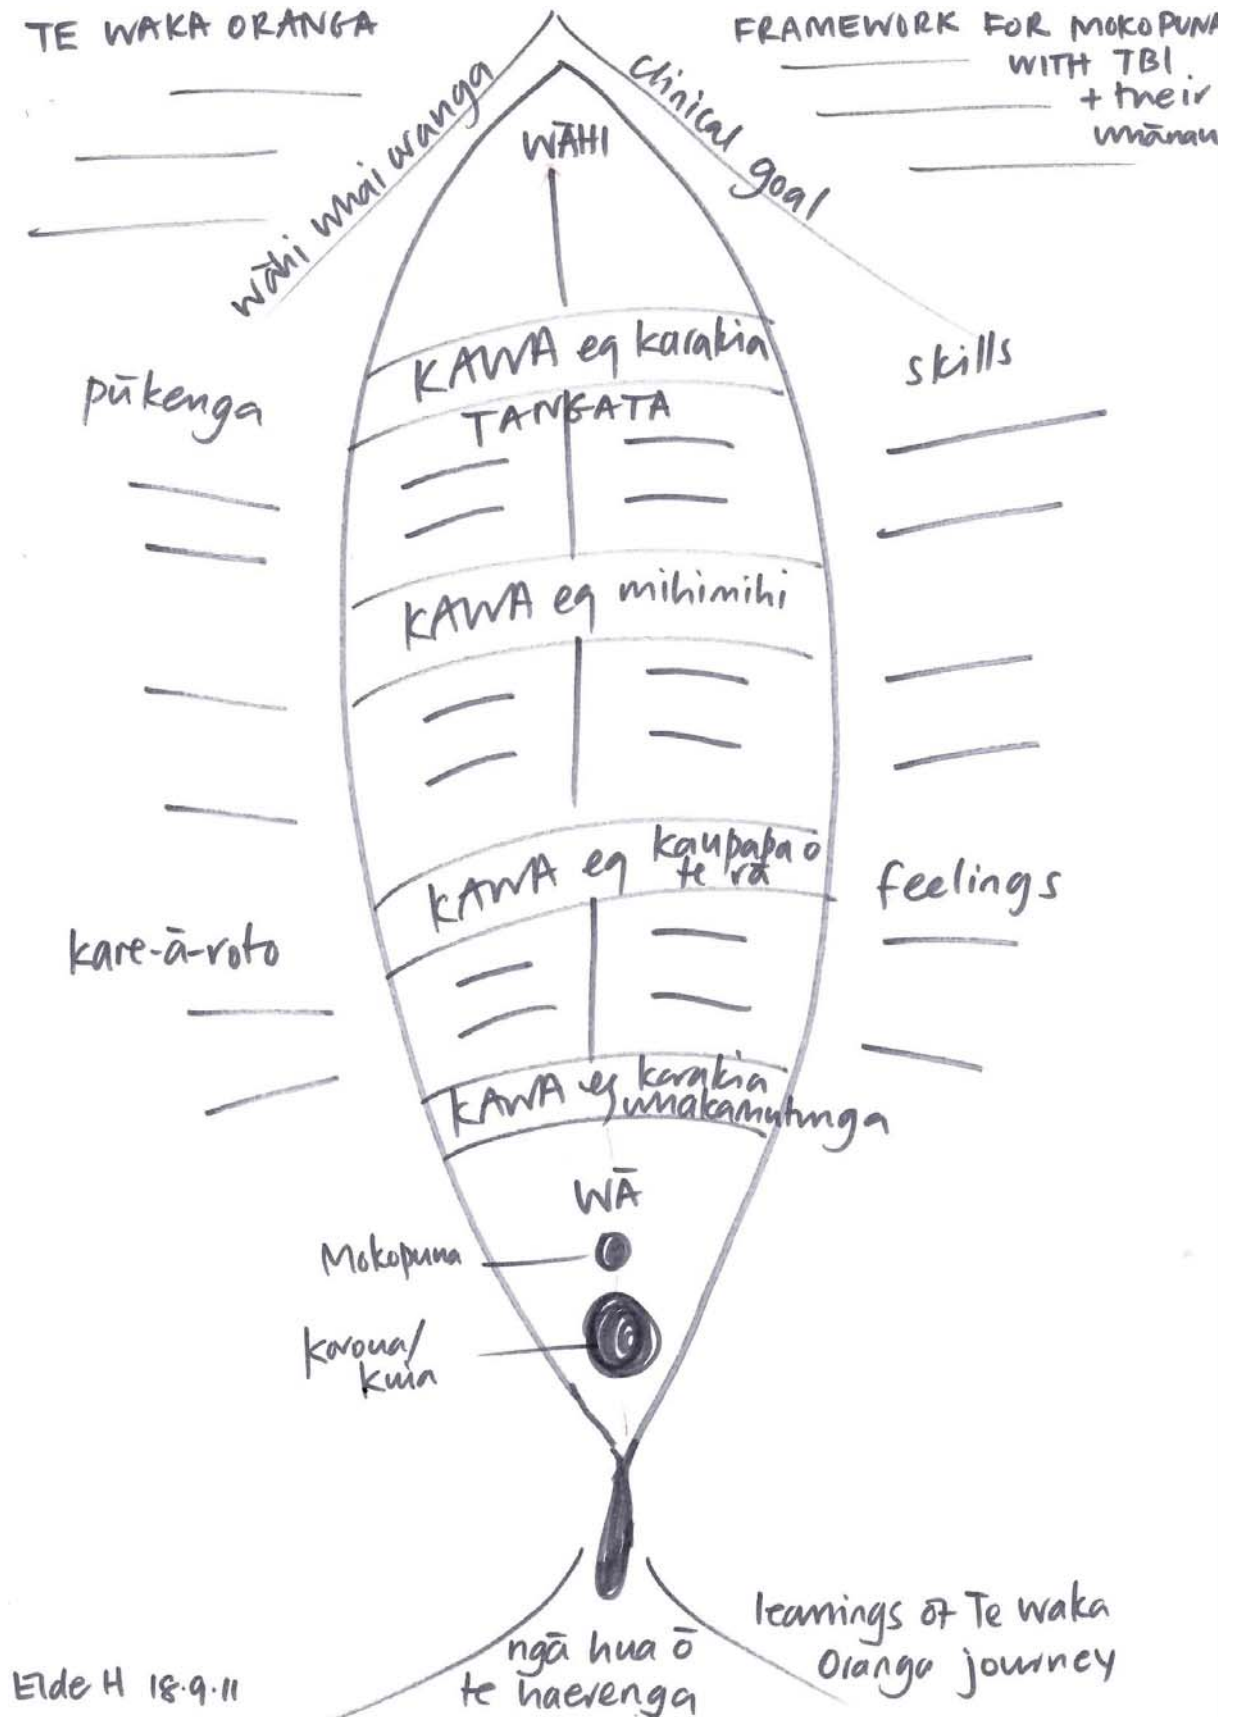 TE WAKA ORANGA
FRAMEWORK FOR MOKOPUNA
WITH TBI
+ their
whānau
wāhi whai oranga
clinical goal
WĀHI
KAWA eg karakia
TANGATA
pūkenga
skills
KAWA eg mihimihi
KAWA eg kaupapa ō
te rā
kare-ā-roto
feelings
KAWA eg karakia
whakamutunga
WĀ
Mokopuna
Koroua/
kuia
ngā hua ō
te haerenga
learnings of Te Waka
Oranga journey
Elde H 18.9.11